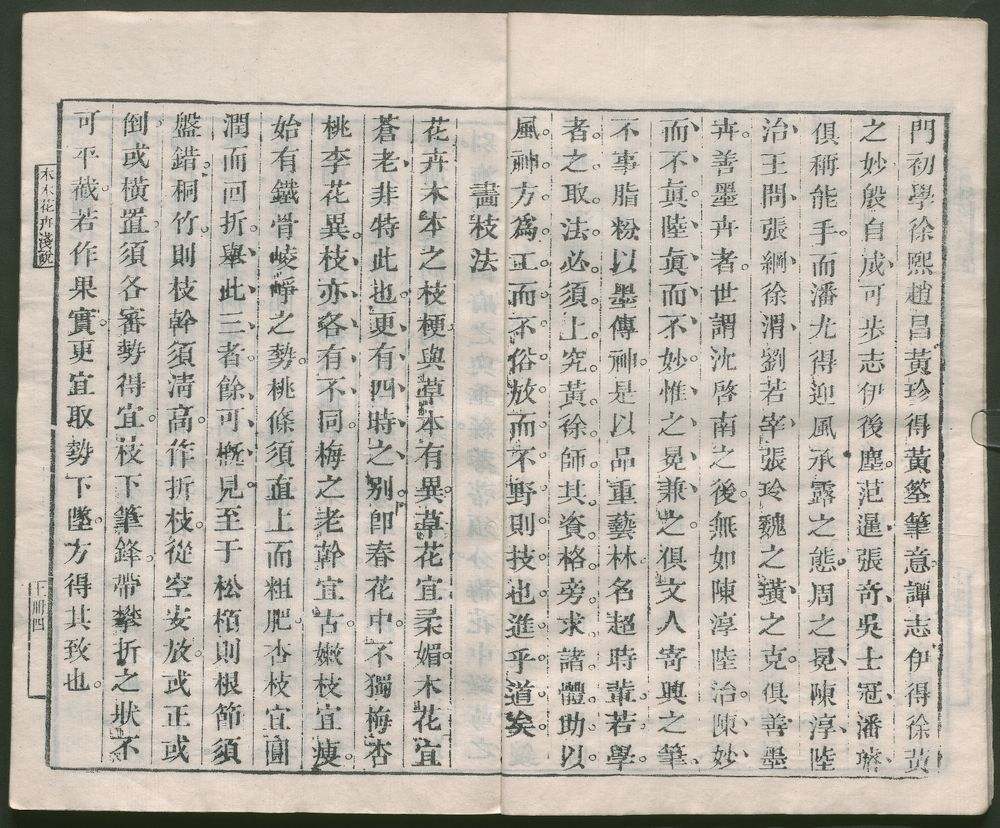 門初學徐熙趙昌黃珍得黃筌筆意譚志伊得徐黃
之妙殷自成可步志伊後塵范暹張奇吳士冠潘璿
俱稱能手而潘尤得迎風承露之態周之冕陳淳陸
治王問張綱徐渭劉若宰張玲魏之璜之克俱善墨
卉善墨卉者世謂沈啓南之後無如陳淳陸治陳妙
而不眞陸眞而不妙惟之冕兼之俱文人寄興之筆
不事脂粉以墨傳神是以品重藝林名超時輩若學
者之取法必須上究黃徐師其資格旁求諸體助以
風神方爲工而不俗放而不野則技也進乎道矣
畫枝法
花卉木本之枝梗與草本有異草花宜柔媚木花宜
蒼老非特此也更有四時之别卽春花中不獨梅杏
桃李花異枝亦各有不同梅之老幹宜古嫩枝宜瘦
始有鐵骨崚崢之勢桃條須直上而粗肥杏枝宜圓
潤而回折舉此三者餘可槪見至于松栢則根節須
盤錯桐竹則枝幹須淸高作折枝從空安放或正或
倒或橫置須各審勢得宜枝下筆鋒帶攀折之狀不
可平截若作果實更宜取勢下墜方得其致也
木本花卉淺說
上册四